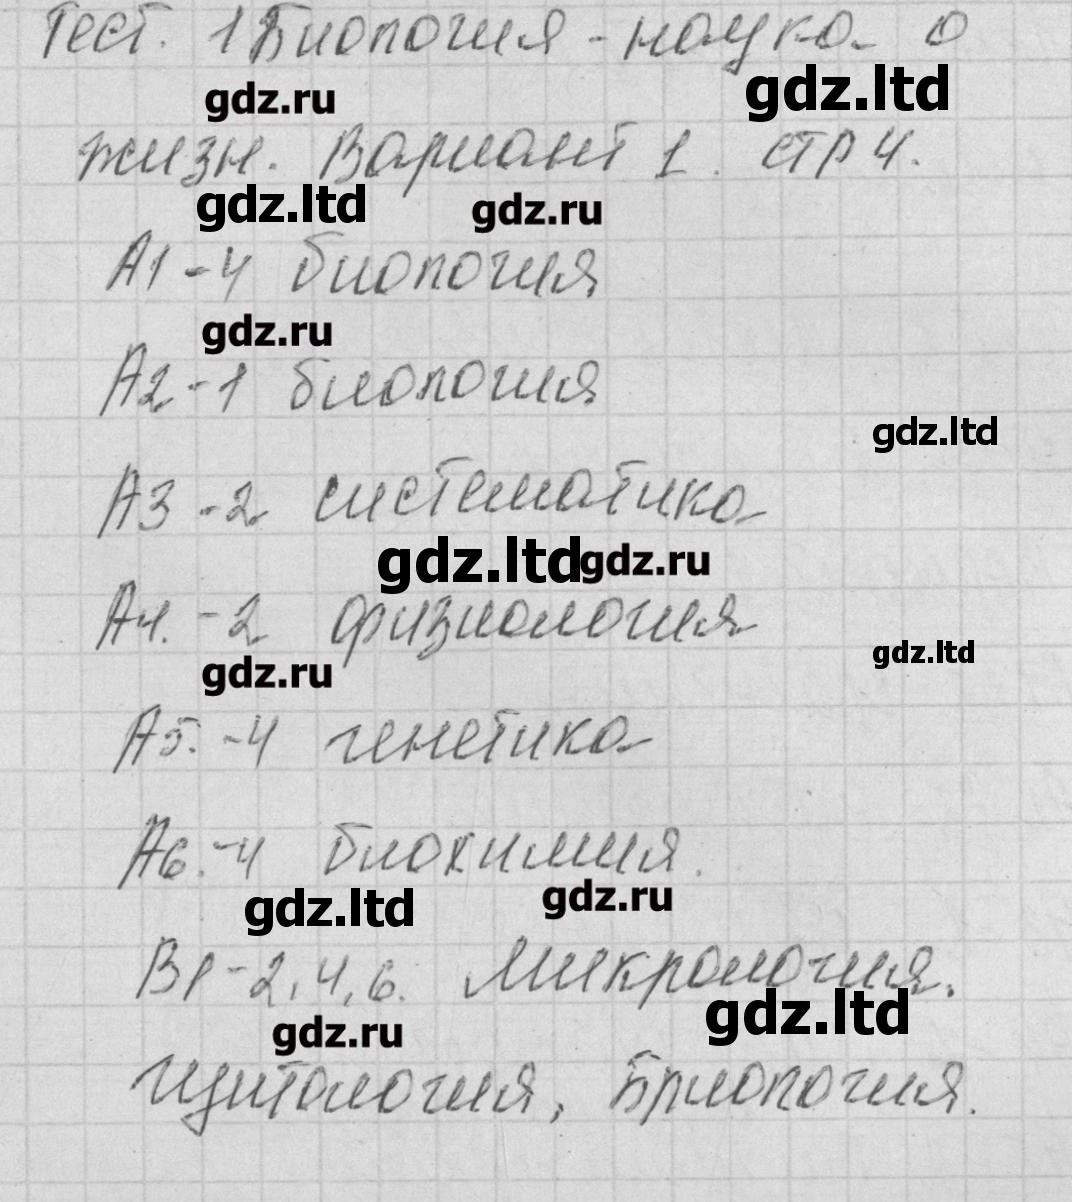 Тест. 1 Биология - наука о
gdz.ru gdz.ltd
жизн. Вариант 1. стр 4.
gdz.ltd gdz.ru
А1 - 4 биология
gdz.ru
А2 - 1 биология
gdz.ltd
А3 - 2 систематика
gdz.ltd gdz.ru
А4. - 2 физиология
gdz.ltd
gdz.ru
А5. - 4 генетика
А6. - 4 биохимия.
gdz.ltd gdz.ru
В1 - 2, 4, 6. Микрология.
gdz.ru gdz.ltd
Цитология, Бриология.